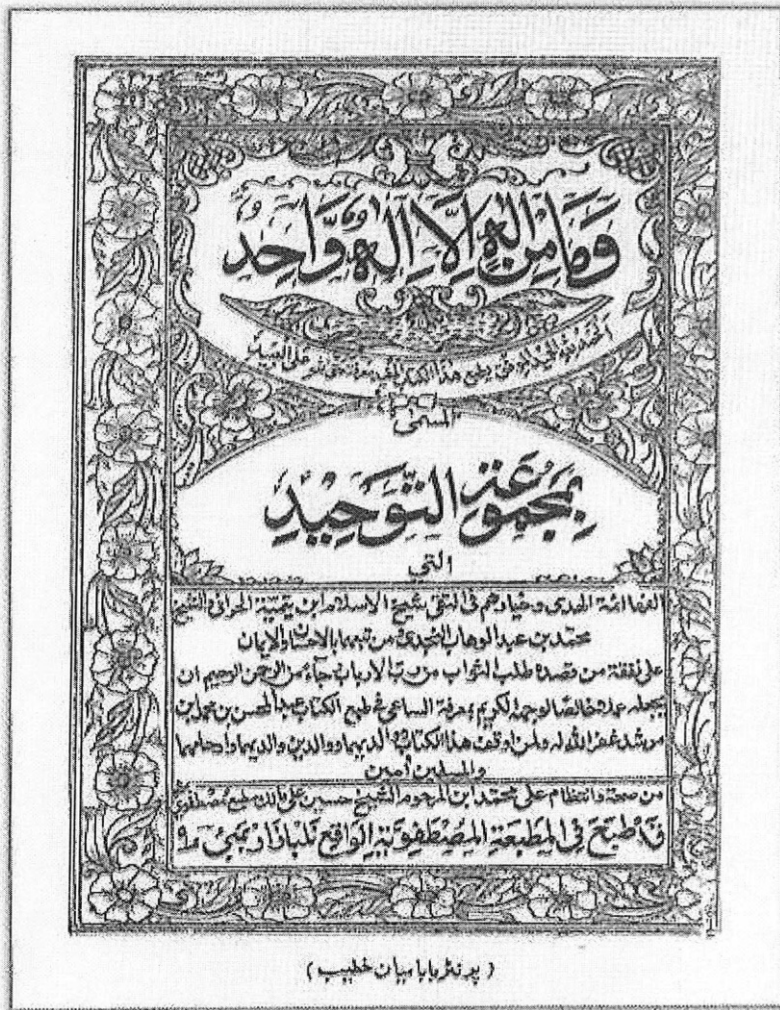 وَمَا مِنْ اِلٰهٍ اِلَّا اِلٰهٌ وَّاحِدٌ
الحمد لله طبع هذا الكتاب على العبيد
المسمى
بمجموعة التوحيد
التي
الفها ائمة الهدى وخيارهم فى التقى شيخ الاسلام ابن يتمية الحرانى والشيخ
محمد بن عبد الوهاب النجدى من تبعهما بالاحسان والايمان
على نفقة من قصده طلب الثواب من رب الارباب جآء من الرحمن الرحيم ان
يجعله عملا خالصا لوجهه الكريم بمعرفة الساعى فى طبع الكتاب عبد المحسن بن محمد ابن
مرشد غفر الله له ولمن اوقف هذا الكتاب ولوالديهما ووالدين والديهما وارحامهما
والمسلمين آمين
من صحة وانتظام على محمد ابن المرحوم الشيخ حسين على مالك مطبع مصطفوى
قد طبع فى المطبعة المصطفوية الواقع نلبازار بمبئ ٩
(پرنٹر بابا میان خطیب)